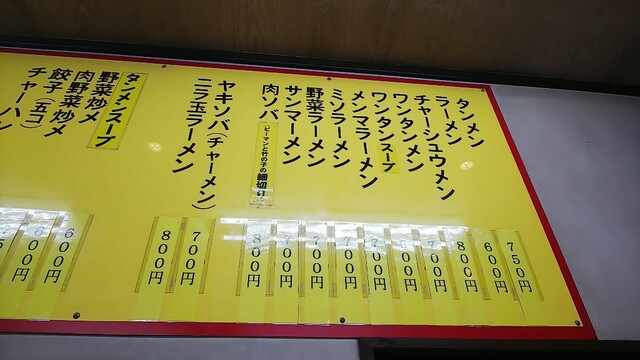 タンメン
ラーメン
チャーシュウメン
ワンタンメン
ワンタンスープ
メンマラーメン
ミソラーメン
野菜ラーメン
サンマーメン
肉ソバ(ピーマンと竹の子の細切り)
ヤキソバ(チャーメン)
ニラ玉ラーメン
タンメンスープ
野菜炒メ
肉野菜炒メ
餃子(五コ)
チャーハン
750円
600円
800円
700円
700円
700円
700円
700円
800円
700円
800円
600円
600円